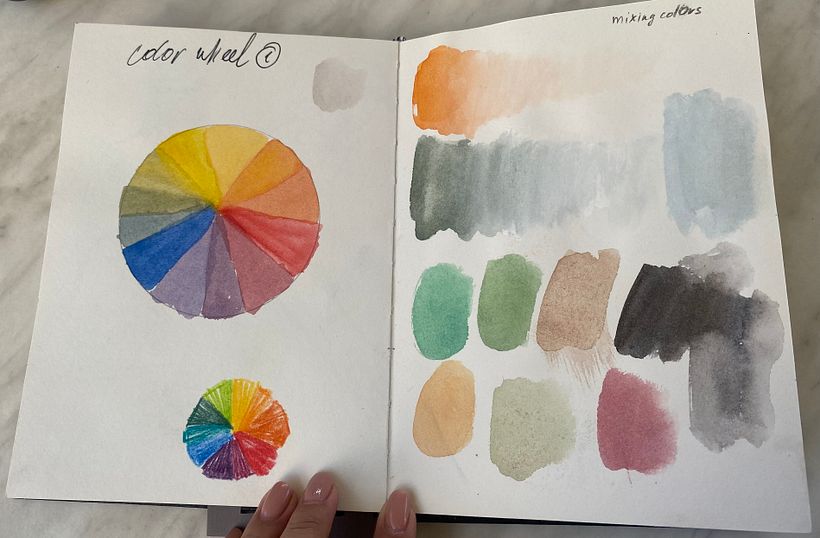 color wheel ①
mixing colors